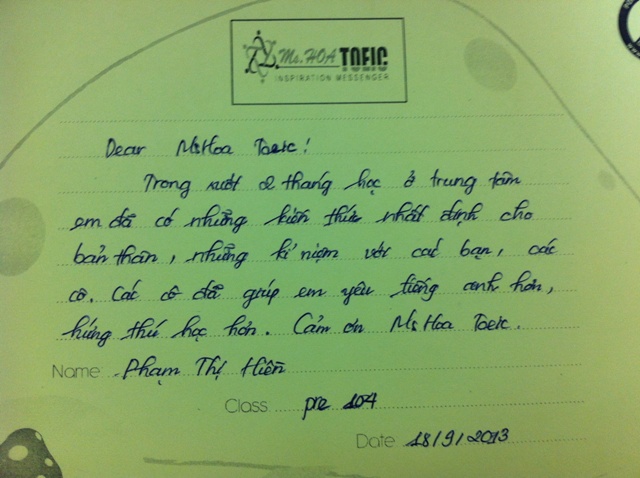 Ms.HOA TOEIC
INSPIRATION MESSENGER
Dear MsHoa Toeic!
Trong suốt 2 tháng học ở trung tâm
em đã có những kiến thức nhất định cho
bản thân, những kỉ niệm với các bạn, các
cô. Các cô đã giúp em yêu tiếng anh hơn,
hứng thú học hơn. Cảm ơn Ms Hoa Toeic.
Name Phạm Thị Hiền
Class pre 104
Date 18/9/2013